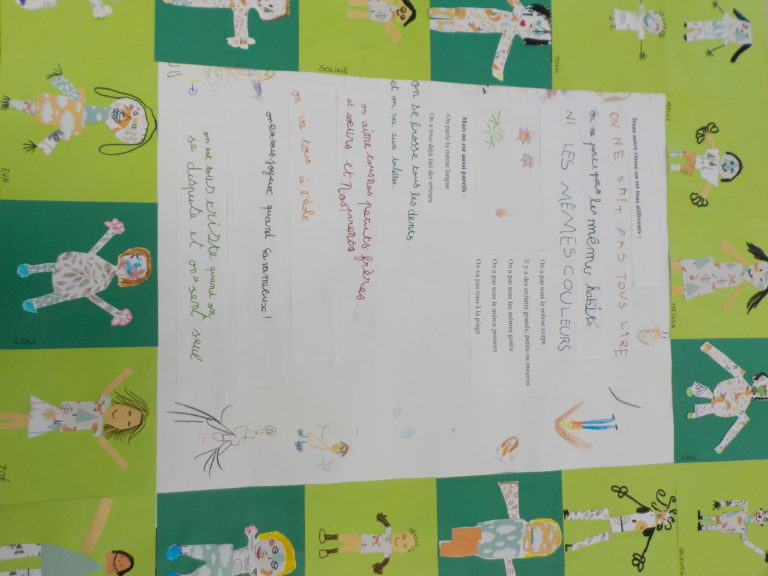 Dans notre classe on est tous différents :
ON NE SAIT PAS TOUS LIRE
on ne porte pas les mêmes habits
NI LES MÊMES COULEURS
On a pas tous le même corps
Il y a des enfants grands, petits ou moyens
On a pas tous les mêmes goûts
On a pas tous le même prénom
On va pas tous à la plage
Mais on est aussi pareils :
On parle la même langue
On a tous déjà fait des erreurs
on se brosse tous les dents
et on va aux toilettes
on aime tous nos petits frères
et sœurs et Nos parents
on va tous à l'école
on est tous joyeux quand
on est tous triste quand on
se dispute et on se sent seul
SOLINE
TONI
EVA
LOU
ZOÉ
MELISSA